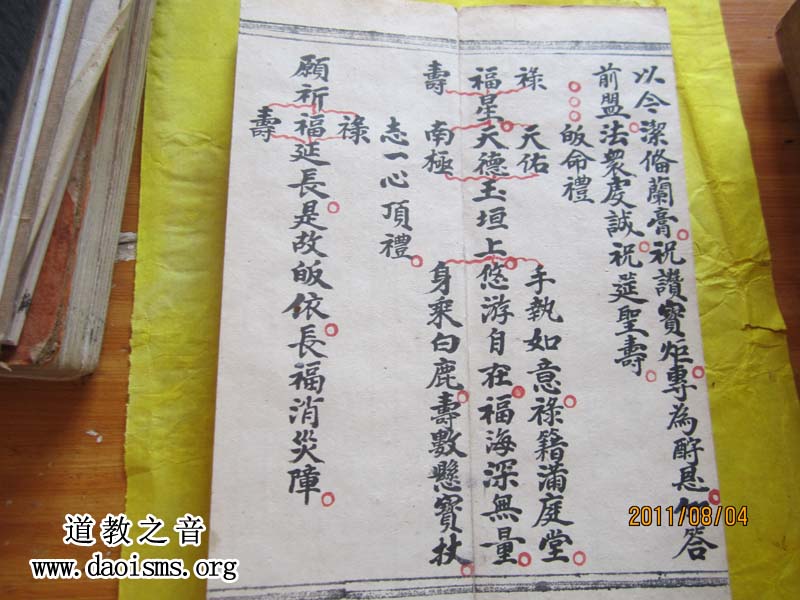 以今潔俻蘭膏祝讚寶炬專為酧恩答
前盟法眾虔誠祝莚聖壽
皈命禮
祿 天佑 手執如意祿籍滿庭堂
福星天德玉垣上悠游自在福海深無量
壽 南極 身乘白鹿壽數懸寶杖
志一心頂禮
祿
願祈福延長是故皈依長福消災障
壽
2011/08/04
道教之音
www.daoisms.org